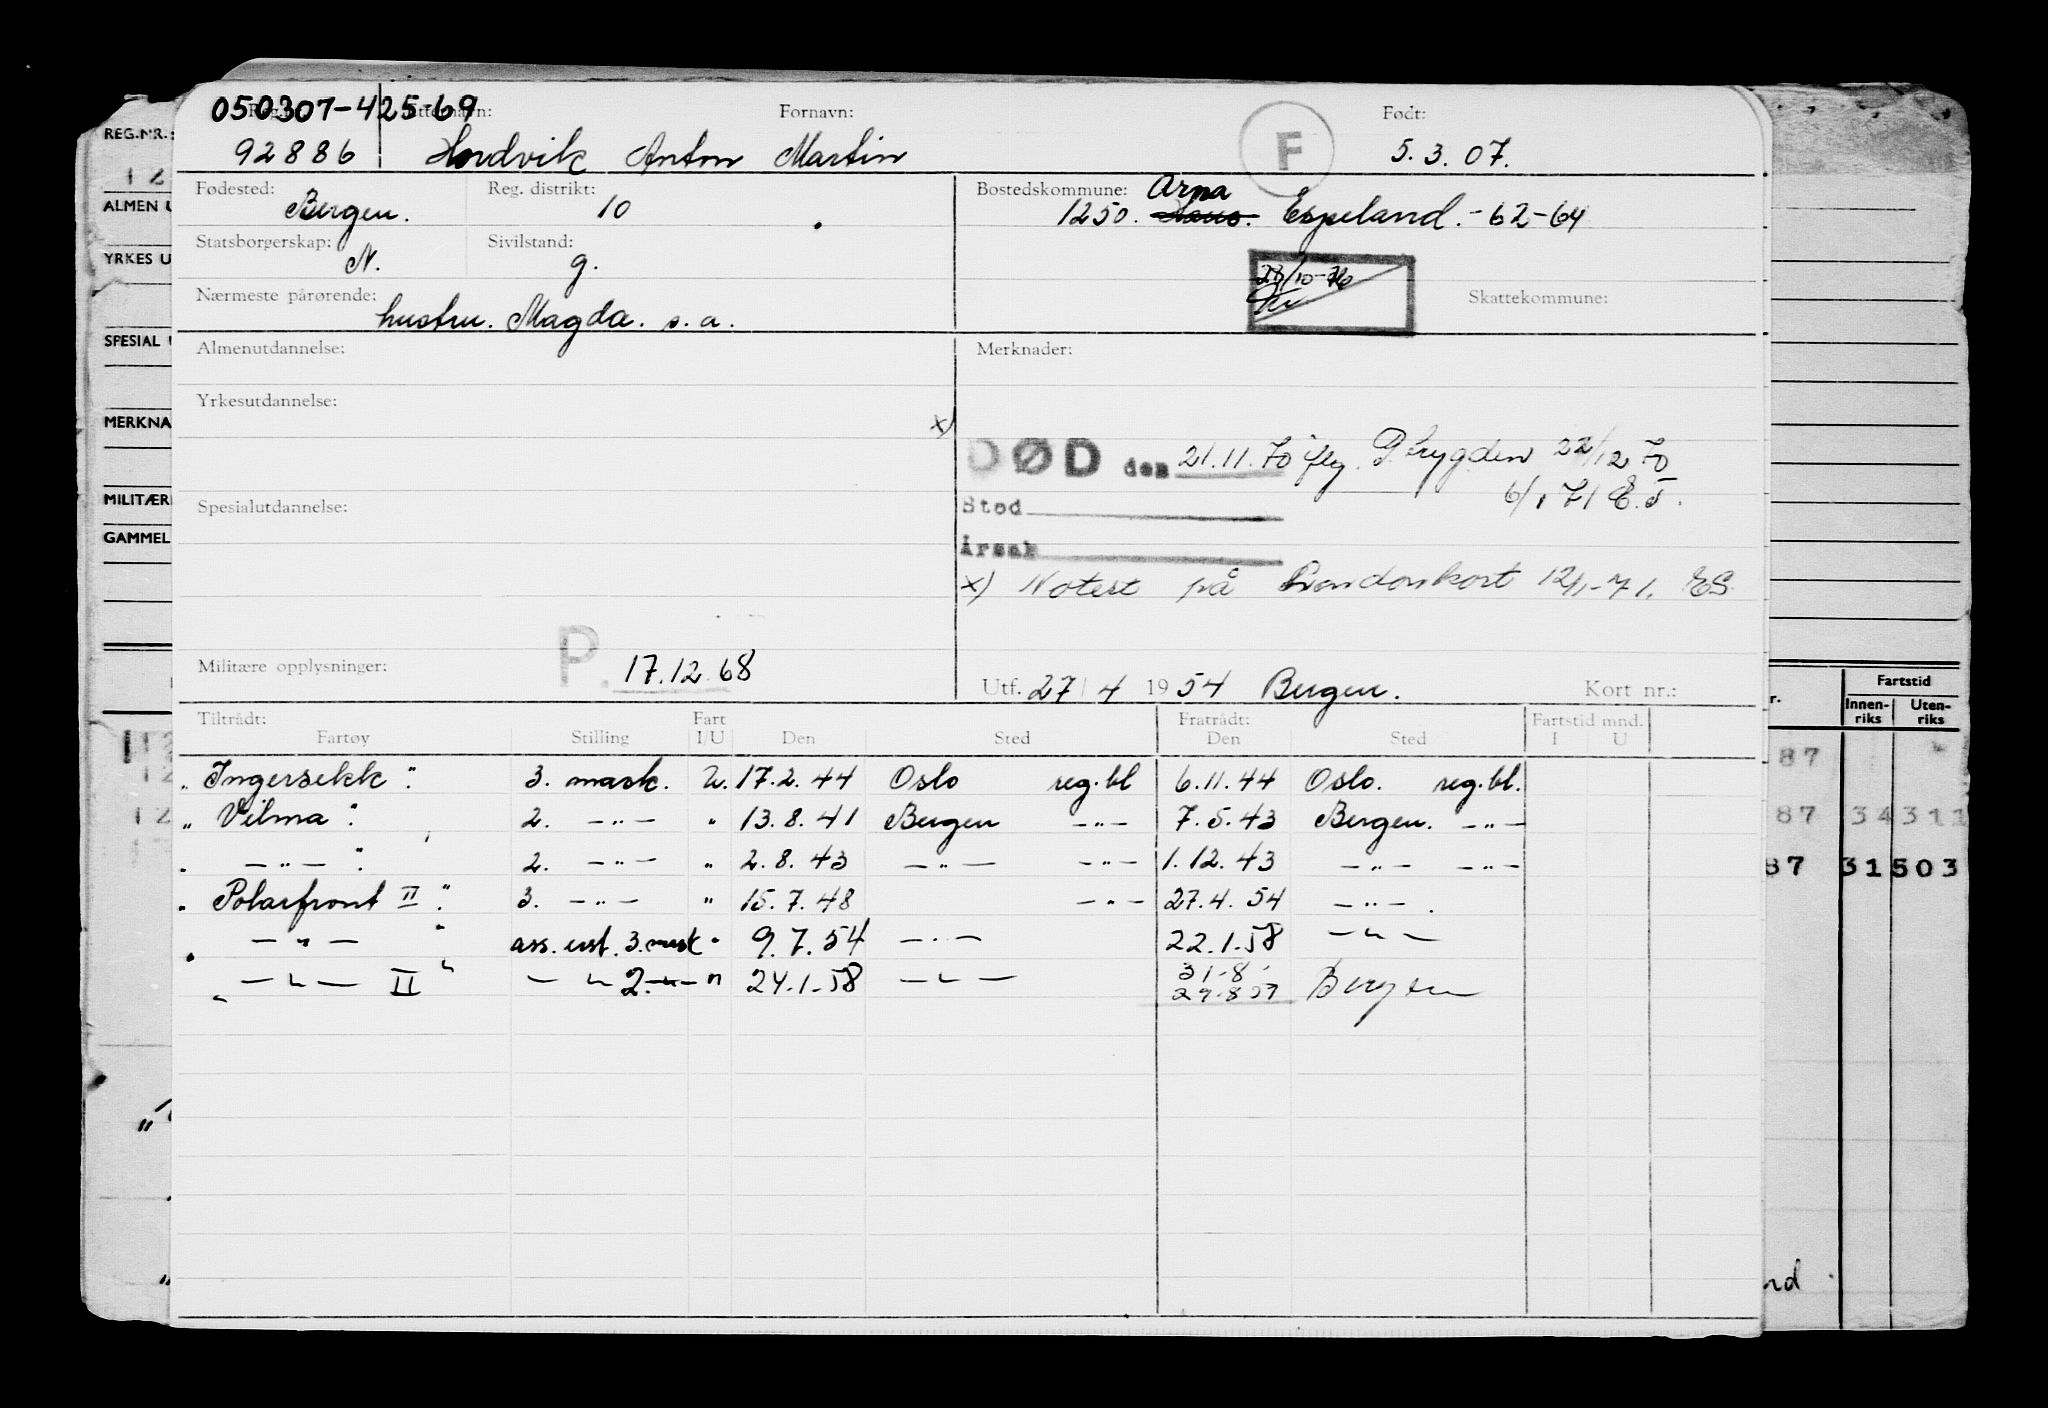 050307-425-69
Reg.nr. Etternavn: Fornavn: Født:
92886 Hordvik Anton Martin F 5.3.07.
Fødested: Reg. distrikt: Bostedskommune: Arna
Bergen. 10 1250. Haus. Espeland. - 62-64
Statsborgerskap: Sivilstand:
N. g.
Nærmeste pårørende: Skattekommune:
hustru. Magda. s.a.
Almenutdannelse: Merknader:
Yrkesutdannelse:
x)
DØD den 21.11.70 iflg. P.trygden 22/12 70
6/1 71 E.S.
Spesialutdannelse: Sted
Årsak
x) Notert på Londonkort 12/1-71. ES
Militære opplysninger: P. 17.12.68
Utf. 27/4 1954 Bergen. Kort nr.:
Tiltrådt: Fart Fratrådt: Fartstid mnd.
Fartøy Stilling I/U Den Sted Den Sted I U
"Ingersekk" 3. mask. U. 17.2.44 Oslo reg.bl 6.11.44 Oslo. reg.bl.
"Vilma" 2. —"— " 13.8.41 Bergen —"— 7.5.43 Bergen. —"—
" —"— " 2. —"— " 2.8.43 —"— —"— 1.12.43 —"— —"—
"Polarfront II" 3. —"— " 15.7.48 —"— 27.4.54 —"—.
" —"— " ass. erst. 3. mask " 9.7.54 —"— 22.1.58 —"—
" —"— II " —"— 2. —"— " 24.1.58 —"— 31.8. Bergen
REG.NR.:
12
ALMEN U
YRKES U
SPESIAL U
MERKNA
MILITÆR
GAMMEL
Fartstid
r. Innen-riks Uten-riks
87
87 34 311
87 31 503
nd